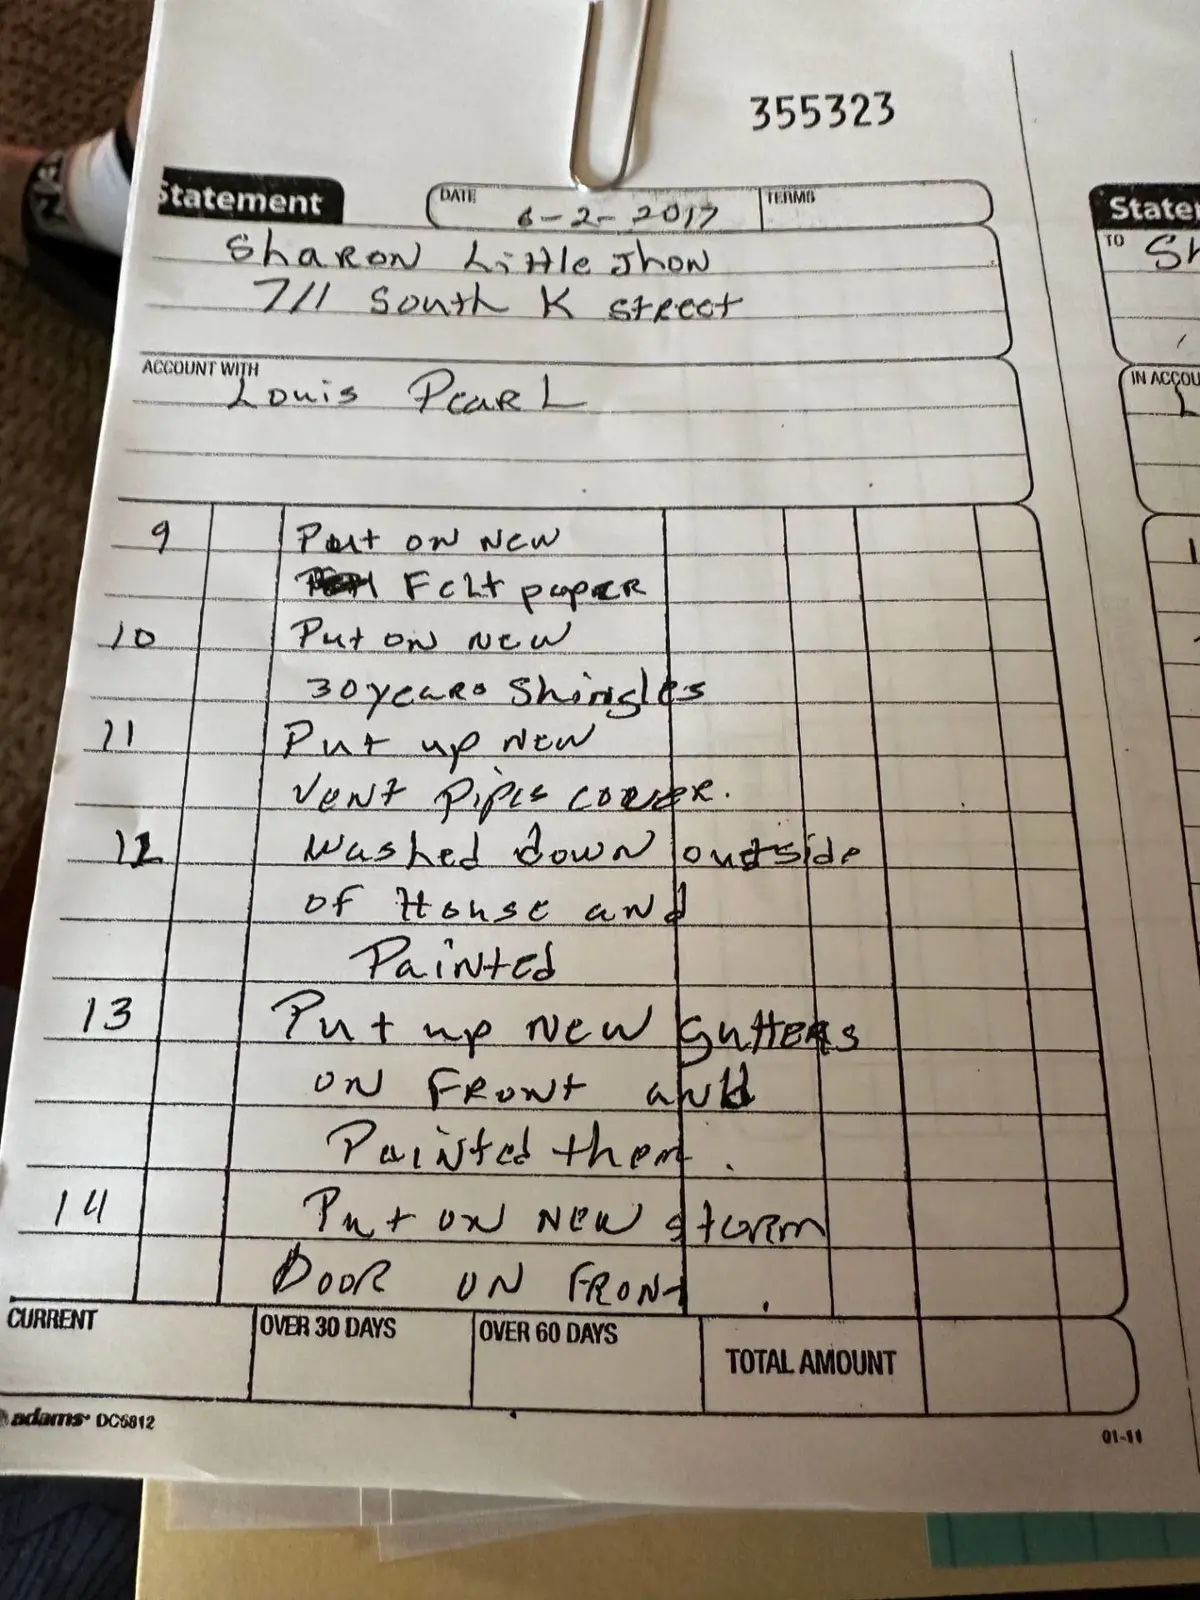 355323
Statement
DATE 6-2-2017 TERMS
Sharon Little Jhon
711 South K street
ACCOUNT WITH
Louis Pearl
9 Put on new
Felt paper
10 Put on new
30 years Shingles
11 Put up new
vent pipes cover.
12 Washed down outside
of House and
Painted
13 Put up new gutters
on Front and
Painted them.
14 Put on new storm
Door on Front.
CURRENT OVER 30 DAYS OVER 60 DAYS TOTAL AMOUNT
adams DC5812
01-11
State
TO Sh
IN ACCOU
L